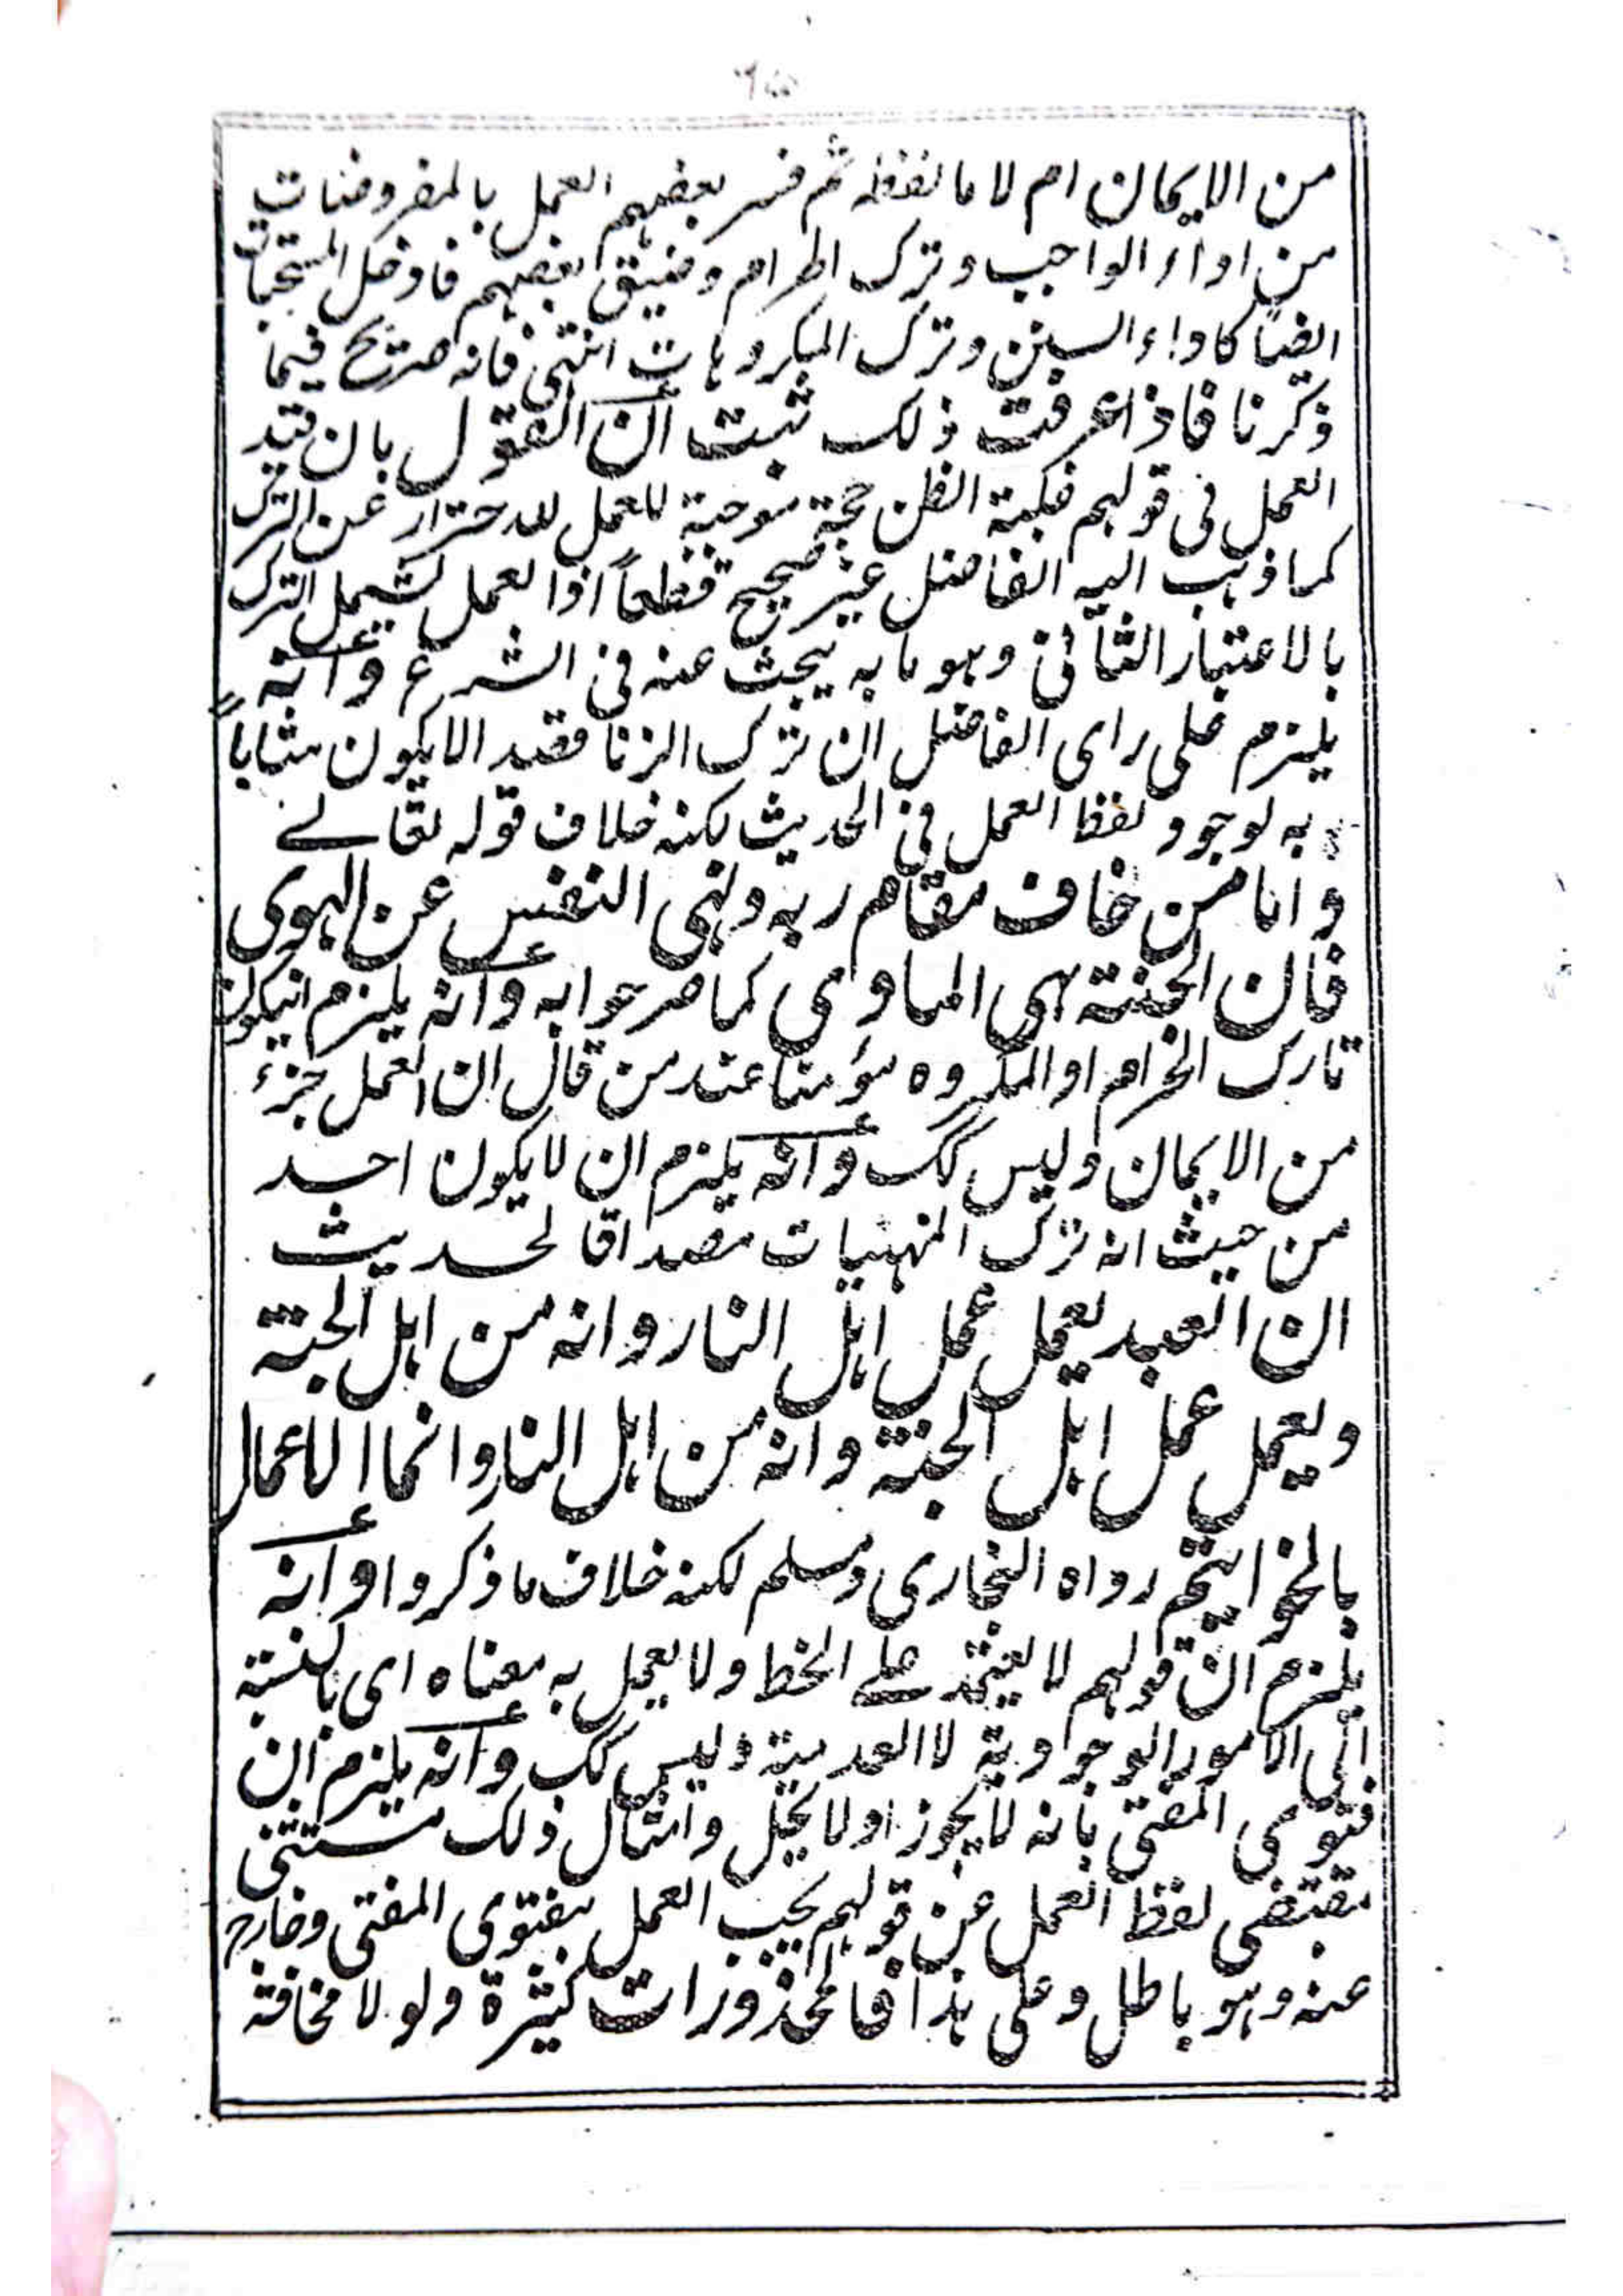 من الايمان ام لا ما نفظه ثم فسر بعضهم العمل بالمفروضات
من اداء الواجب وترك الحرام وضيق بعضهم فادخل المستحبات
ايضا كاداء السنن وترك المكروهات انتهى فانه صريح فيما
ذكرنا فاذا عرفت ذلك ثبت ان القول بان قيد
العمل فى قولهم غلبة الظن حجة موجبة للعمل للاحتراز عن الترك
كما ذهب اليه الفاضل غير صحيح قطعاً اذا العمل يشمل الترك
بالاعتبار الثانى وهو ما به يبحث عنه فى الشرع وانه
يلزم على راى الفاضل ان ترك الزنا فقيد الايكون مثاباً
به لوجود لفظ العمل فى الحديث لكنه خلاف قوله تعالے
واما من خاف مقام ربه ونهى النفس عن الهوى
فان الجنة هى الماوى كما صرحوا به وانه يلزم انيكون
تارك الحرام او المكروه مؤمنا عند من قال ان العمل جزء
من الايمان وليس كك وانه يلزم ان لا يكون احد
من حيث انه ترك المنهيات مصداقا لحديث
ان العبد يعمل عمل اهل النار وانه من اهل الجنة
ويعمل عمل اهل الجنة وانه من اهل النار وانما الاعمال
بالخواتيم رواه البخارى ومسلم لكنه خلاف ما ذكروا وانه
يلزم ان قولهم لا يعتمد علے الخط ولا يعمل به معناه اى بالنسبة
الى الامور الوجودية لا العدمية وليس كك وانه يلزم ان
فتوى المفتى بانه لا يجوز او لا يحل وامثال ذلك مستثنى
بمقتضى لفظ العمل عن قولهم يجب العمل بفتوى المفتى وخارج
عنه وهو باطل وعلى هذا فالمحذورات كثيرة ولو لا مخافة